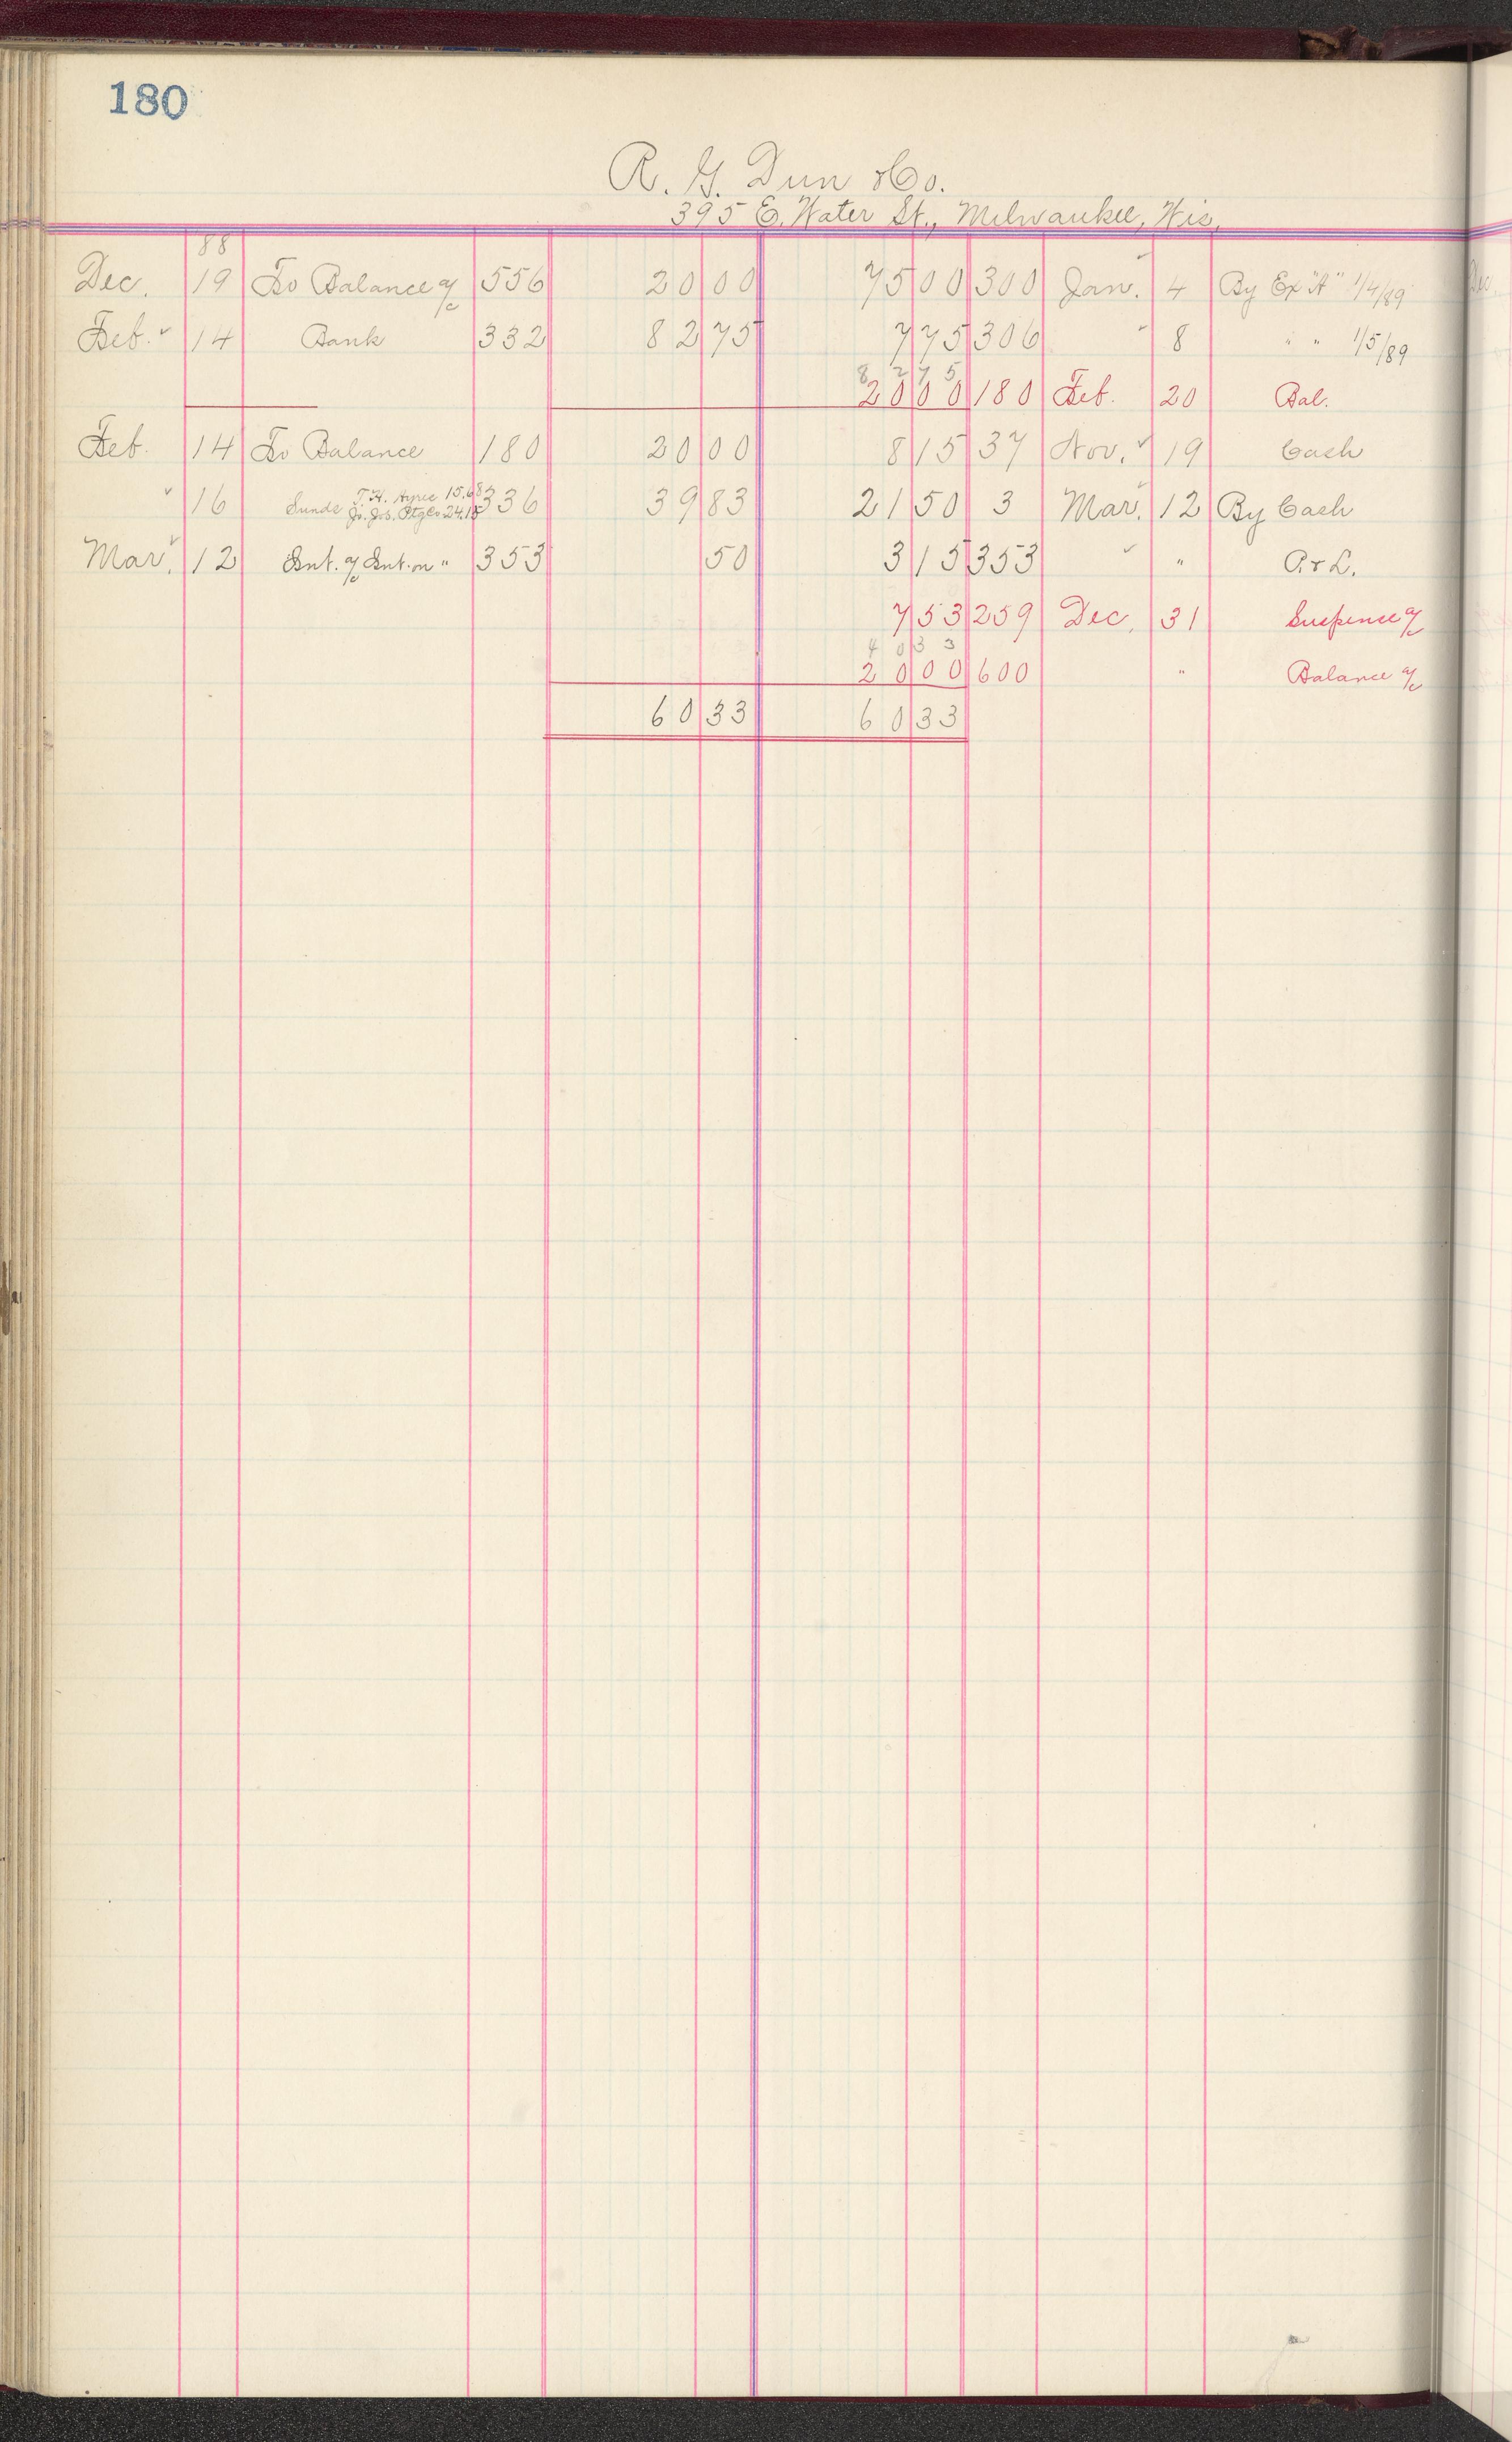 180
R. G. Dun & Co.
395 E. Water St., Milwaukee, Wis.
88
Dec. 19 To Balance a/c 556 20 00 75 00 300 Jan. 4 By Ex "A" 1/4/89
Feb. ✓ 14 Bank 332 82 75 7 75 306 " 8 " " 1/5/89
82 75
20 00 180 Feb. 20 Bal.
Feb. 14 To Balance 180 20 00 8 15 37 Nov. ✓ 19 Cash
✓ 16 Sunds T. H. 15.68 336 39 83 21 50 3 Mar. 12 By Cash
Jos. 24.15
Mar. ✓ 12 Int. a/c Int. on " 353 50 3 15 353 ✓ " P. & L.
7 53 259 Dec. 31 Suspense a/c
40 33
20 00 600 " Balance a/c
60 33 60 33
Dec